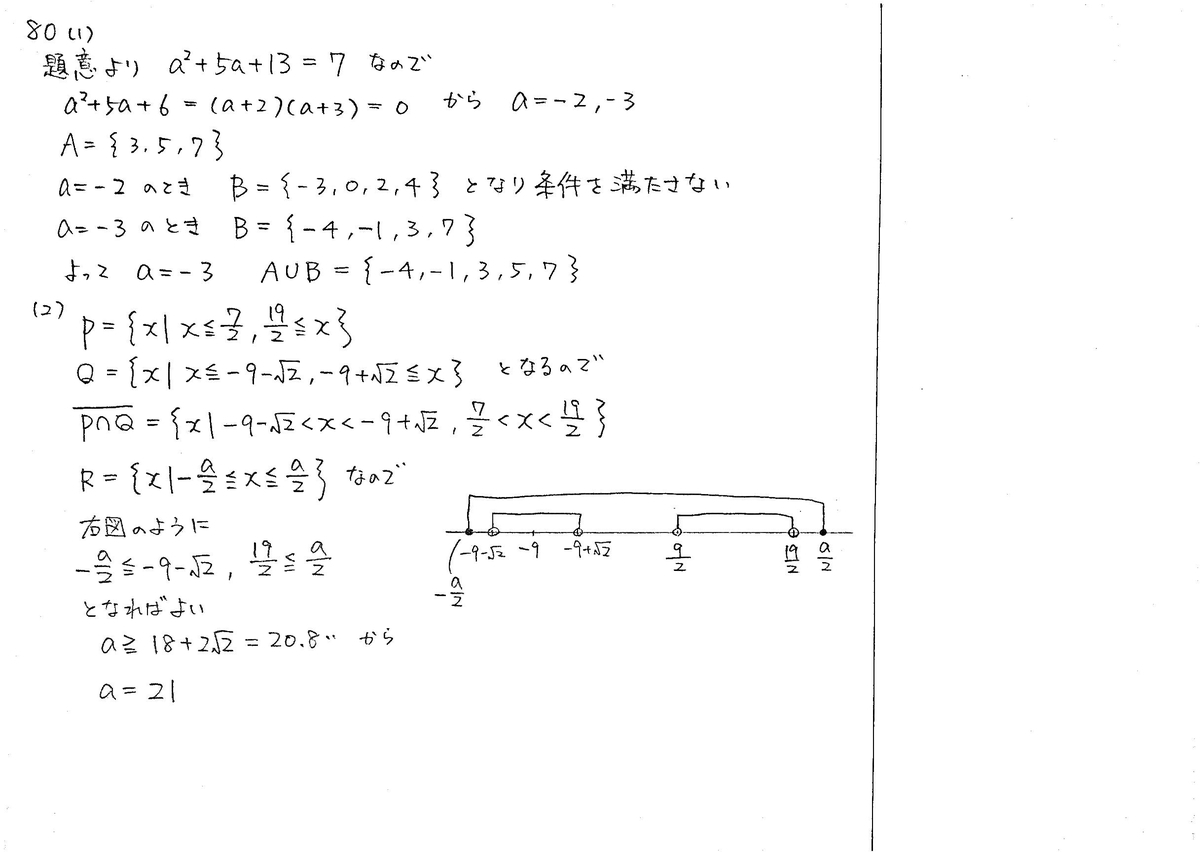 80 (1)
題意より a²+5a+13 = 7 なので
a²+5a+6 = (a+2)(a+3) = 0 から a=-2,-3
A = {3,5,7}
a=-2 のとき B = {-3,0,2,4} となり条件を満たさない
a=-3 のとき B = {-4,-1,3,7}
よって a=-3 A∪B = {-4,-1,3,5,7}
(2)
P = {x| x≦7/2, 19/2≦x}
Q = {x| x≦-9-√2, -9+√2≦x} となるので
\overline{P∩Q} = {x|-9-√2<x<-9+√2, 7/2<x<19/2}
R = {x|-a/2≦x≦a/2} なので
右図のように
-a/2≦-9-√2, 19/2≦a/2
となればよい
a≧18+2√2 = 20.8‥ から
a = 21
-9-√2 -9 -9+√2 9/2 19/2 a/2
-a/2